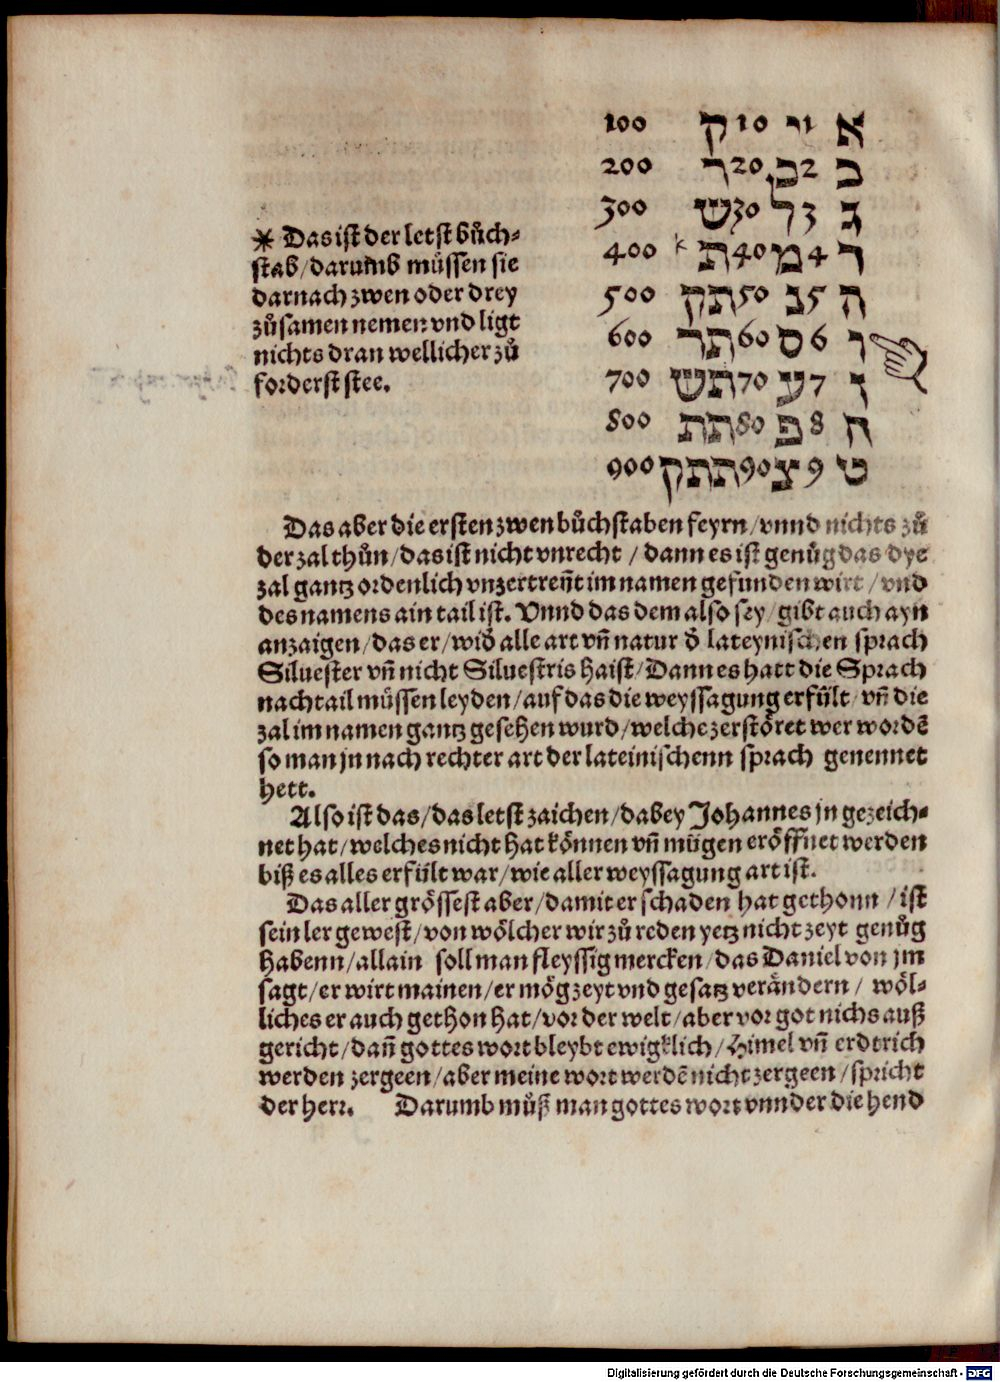 א 1 י 10 ק 100
ב 2 כ 20 ר 200
ג 3 ל 30 ש 300
ד 4 מ 40 ת * 400
ה 5 נ 50 תק 500
ו 6 ס 60 תר 600
ז 7 ע 70 תש 700
ח 8 פ 80 תת 800
ט 9 צ 90 תתק 900
* Das ist der letst bůch⸗
stab/darumb müssen sie
darnach zwen oder drey
zůsamen nemen vnd ligt
nichts dran wellicher zů
forderst stee.
Das aber die ersten zwen bůchstaben feyrn/vnnd nichts zů
der zal thůn/das ist nicht vnrecht/dann es ist genůg das dye
zal gantz ordenlich vnzertreñt im namen gefunden wirt/vnd
des namens ain tail ist. Vnnd das dem also sey/gibt auch ayn
anzaigen/das er/wid̃ alle art vñ natur d̃ lateynischen sprach
Siluester vñ nicht Siluestris haist/Dann es hatt die Sprach
nachtail müssen leyden/auf das die weyssagung erfült/vñ die
zal im namen gantz gesehen wurd/welche zerstöret wer wordẽ
so man jn nach rechter art der lateinischenn sprach genennet
hett.
Also ist das/das letst zaichen/dabey Johannes jn gezeich⸗
net hat/welches nicht hat können vñ mügen eröffnet werden
biß es alles erfült war/wie aller weyssagung art ist.
Das aller grössest aber/damit er schaden hat gethonn/ist
sein ler gewest/von wölcher wir zů reden yetz nicht zeyt genůg
habenn/allain soll man fleyssig mercken/das Daniel von jm
sagt/er wirt mainen/er mög zeyt vnd gesatz verändern/wöl⸗
liches er auch gethon hat/vor der welt/aber vor got nichs auß
gericht/dañ gottes wort bleybt ewigklich/Himel vñ erdtrich
werden zergeen/aber meine wort werdẽ nicht zergeen/spricht
der herr. Darumb můß man gottes wort vnnder die hend
Digitalisierung gefördert durch die Deutsche Forschungsgemeinschaft - DFG